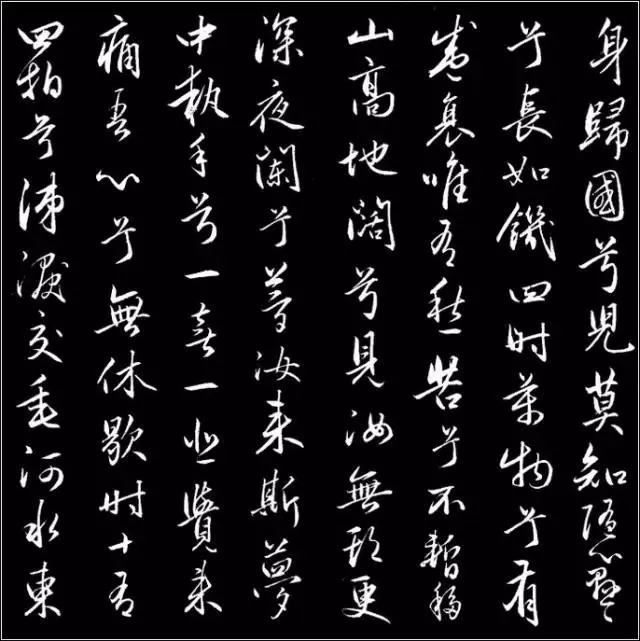 身歸國兮兒莫知隨心懸懸
兮長如饑四時萬物兮有
盛衰唯有愁苦兮不暫移
山高地闊兮見汝無期更
深夜闌兮夢汝來斯夢
中執手兮一喜一悲覺來
痛吾心兮無休歇時十有
四拍兮涕淚交垂河水東